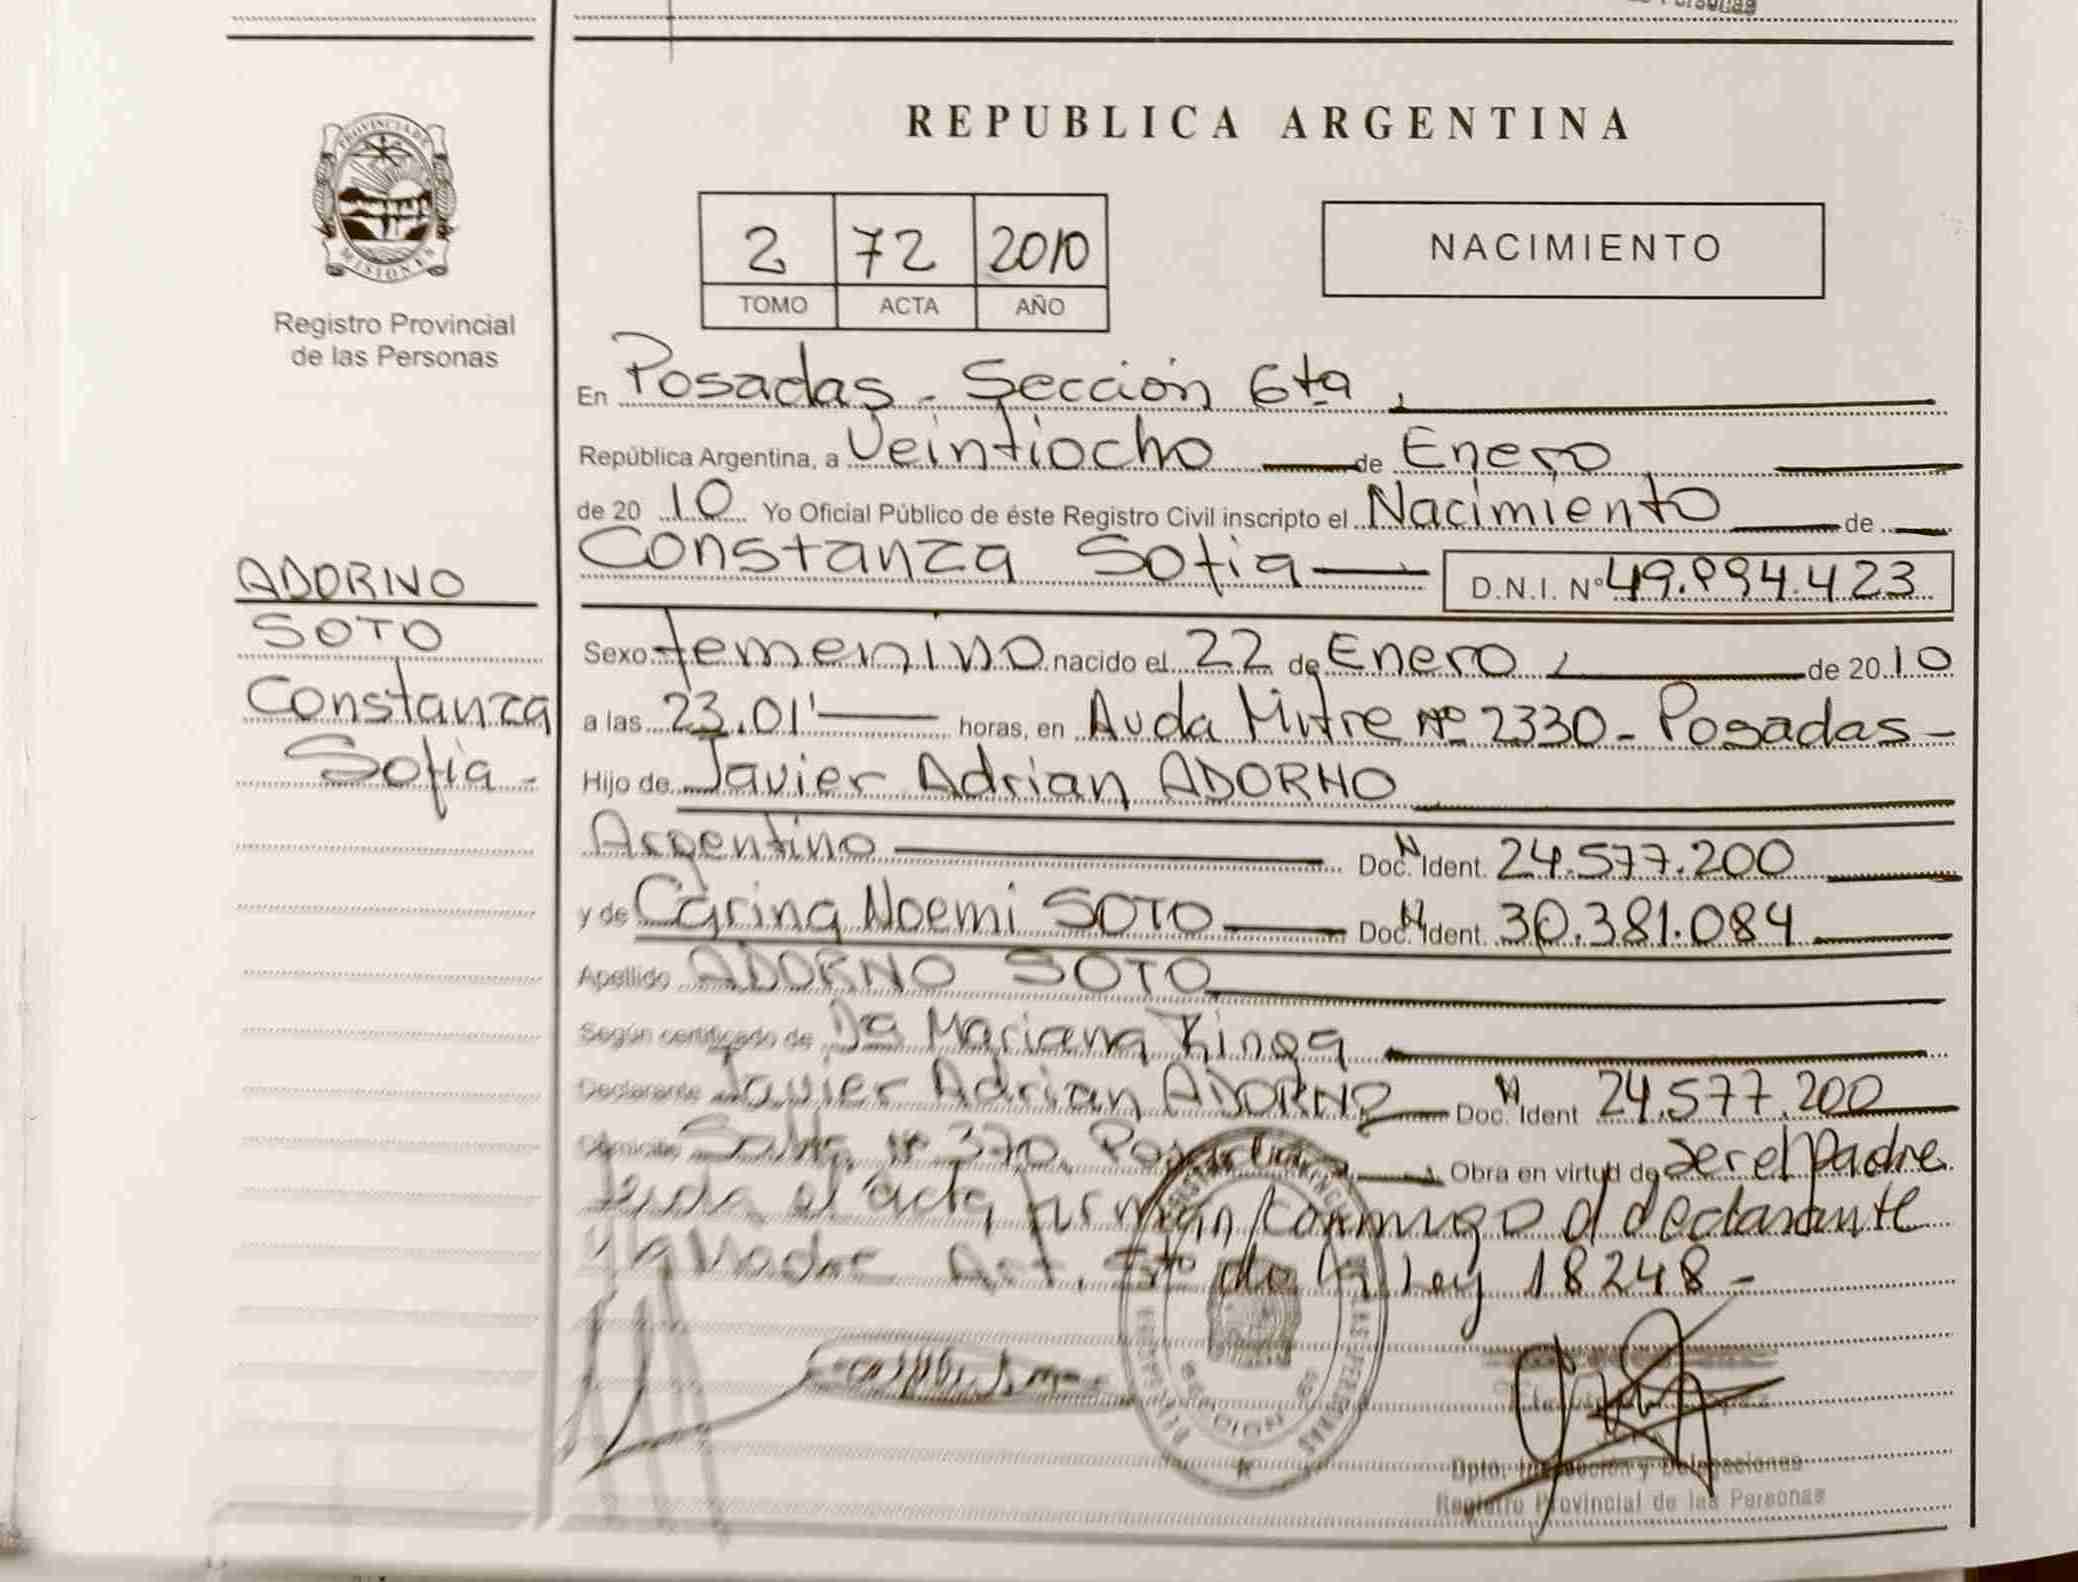 REPUBLICA ARGENTINA
PROVINCIA DE
MISIONES
Registro Provincial
de las Personas
2 72 2010
TOMO ACTA AÑO
NACIMIENTO
En Posadas - Sección 6ta
República Argentina, a Veintiocho de Enero
de 20 10 Yo Oficial Público de éste Registro Civil inscripto el Nacimiento de
Constanza Sofia D.N.I. Nº 49.994.423
ADORNO
SOTO
Constanza
Sofia -
Sexo femenino nacido el 22 de Enero, de 20 10
a las 23.01' horas, en Avda Mitre Nº 2330 - Posadas -
Hijo de Javier Adrian ADORNO
Argentino Doc. N Ident. 24.577.200
y de Carina Noemi SOTO Doc. N Ident. 30.381.084
Apellido ADORNO SOTO
Según certificado de Dra Mariana
Declarante Javier Adrian ADORNO Doc. N Ident 24.577.200
Domicilio Salta Nº 370 Posadas Obra en virtud de ser el Padre
Leida el acta firman conmigo el declarante
y la Madre Art. 5to de la Ley 18248 -
SECCION 6
Dpto. Inspección y Delegaciones
Registro Provincial de las Personas